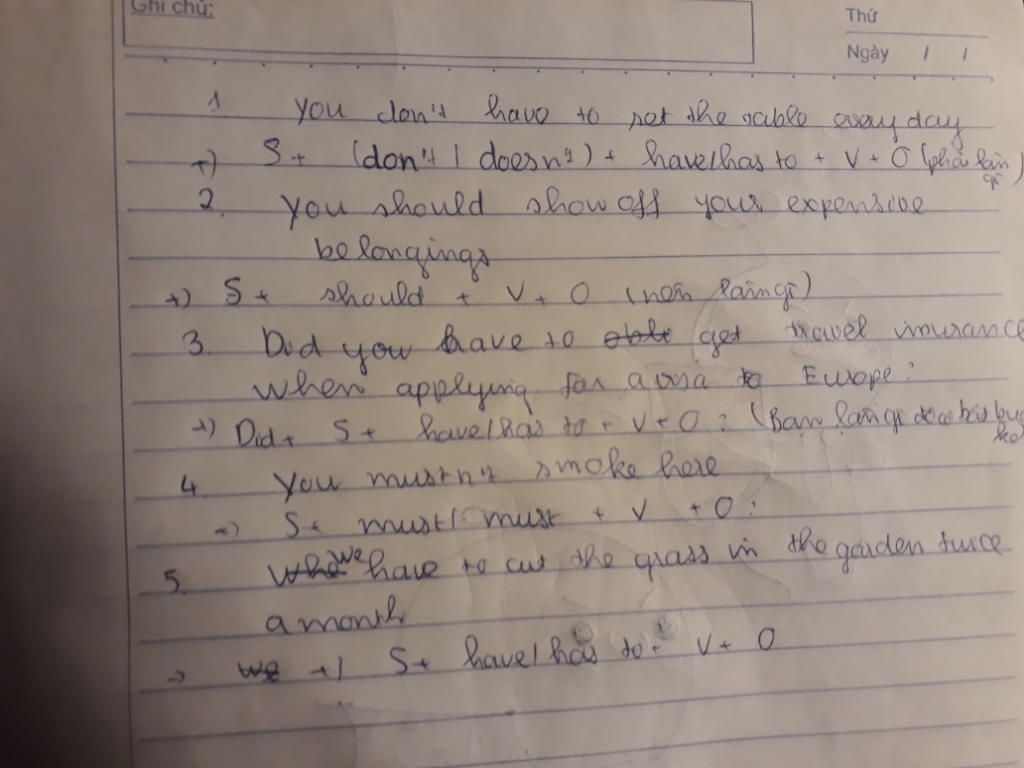 Ghi chú:
Thứ
Ngày / /
1. You don't have to set the table every day
→) S + (don't / doesn't) + have/has to + V + O (phải làm gì)
2. You should show off your expensive
belongings
→) S + should + V + O (nên làm gì)
3. Did you have to get travel insurance
when applying for a visa to Europe?
→) Did + S + have/has to + V + O ? (Bạn làm gì bắt bu
4. You mustn't smoke here
→) S + must/ must + V + O :
5. We have to cut the grass in the garden twice
a month
→ +) S + have/has to + V + O